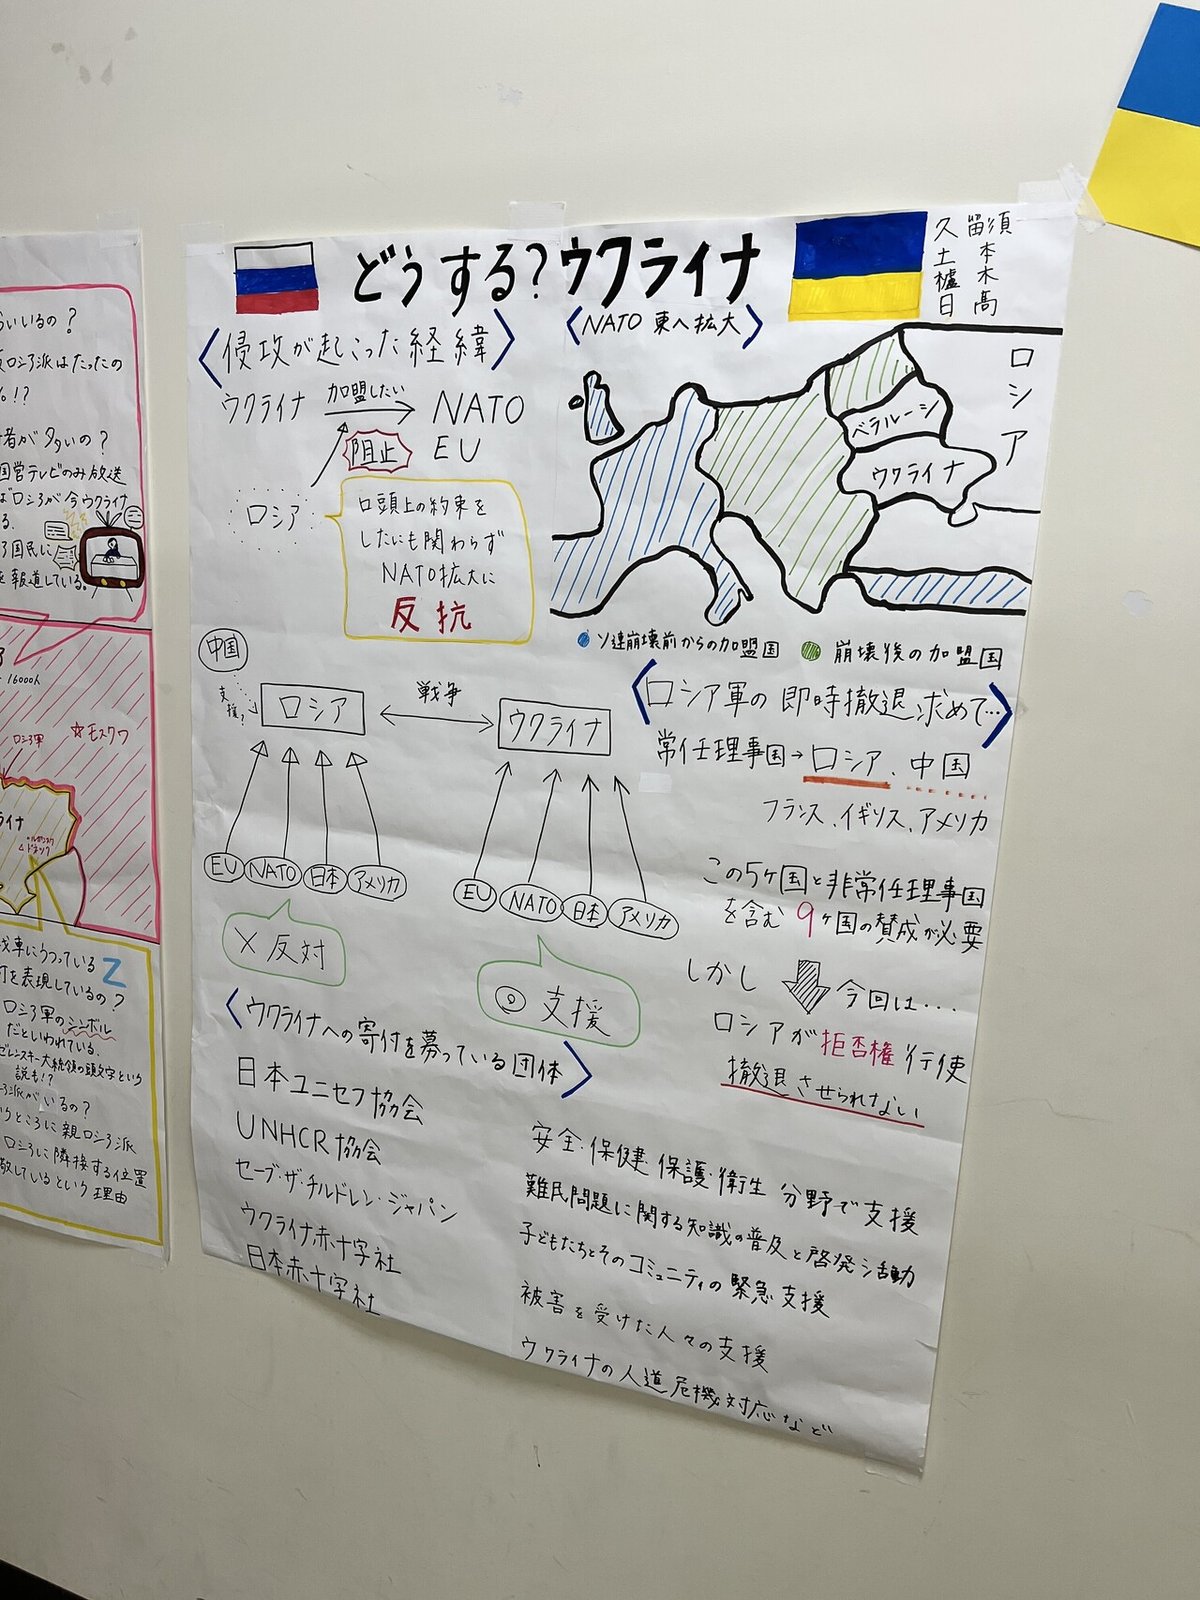 どうする?ウクライナ
久 留 須
土 本
櫨 木
日 高
〈侵攻が起こった経緯〉
ウクライナ 加盟したい NATO
EU
阻止
ロシア
口頭上の約束を
したにも関わらず
NATO拡大に
反抗
〈NATO 東へ拡大〉
ロシア
ベラルーシ
ウクライナ
ソ連崩壊前からの加盟国
崩壊後の加盟国
中国
支援?
ロシア
戦争
ウクライナ
EU NATO 日本 アメリカ
EU NATO 日本 アメリカ
× 反対
◎ 支援
〈ロシア軍の即時撤退求めて…〉
常任理事国→ロシア、中国
フランス、イギリス、アメリカ
この5ヶ国と非常任理事国
を含む 9ヶ国の賛成が必要
しかし 今回は‥‥
ロシアが拒否権行使
撤退させられない
〈ウクライナへの寄付を募っている団体〉
日本ユニセフ協会
安全・保健・保護・衛生 分野で支援
UNHCR協会
難民問題に関する知識の普及と啓発活動
セーブ・ザ・チルドレン・ジャパン
子どもたちとそのコミュニティの緊急支援
ウクライナ赤十字社
被害を受けた人々の支援
日本赤十字社
ウクライナの人道危機対応など
いるの?
ロシア派はたったの
%!?
者が多いの?
国営テレビのみ放送
ロシアが今ウクライナ
る.
国民に
を報道している。
16000人
ロシア軍
☆モスクワ
ライナ
戦車にうつっているZ
を表現しているの?
ロシア軍のシンボル
だといわれている.
ゼレンスキー大統領の頭文字という
説も!?
ロシア派がいるの?
ところに親ロシア派
ロシアに隣接する位置
しているという理由